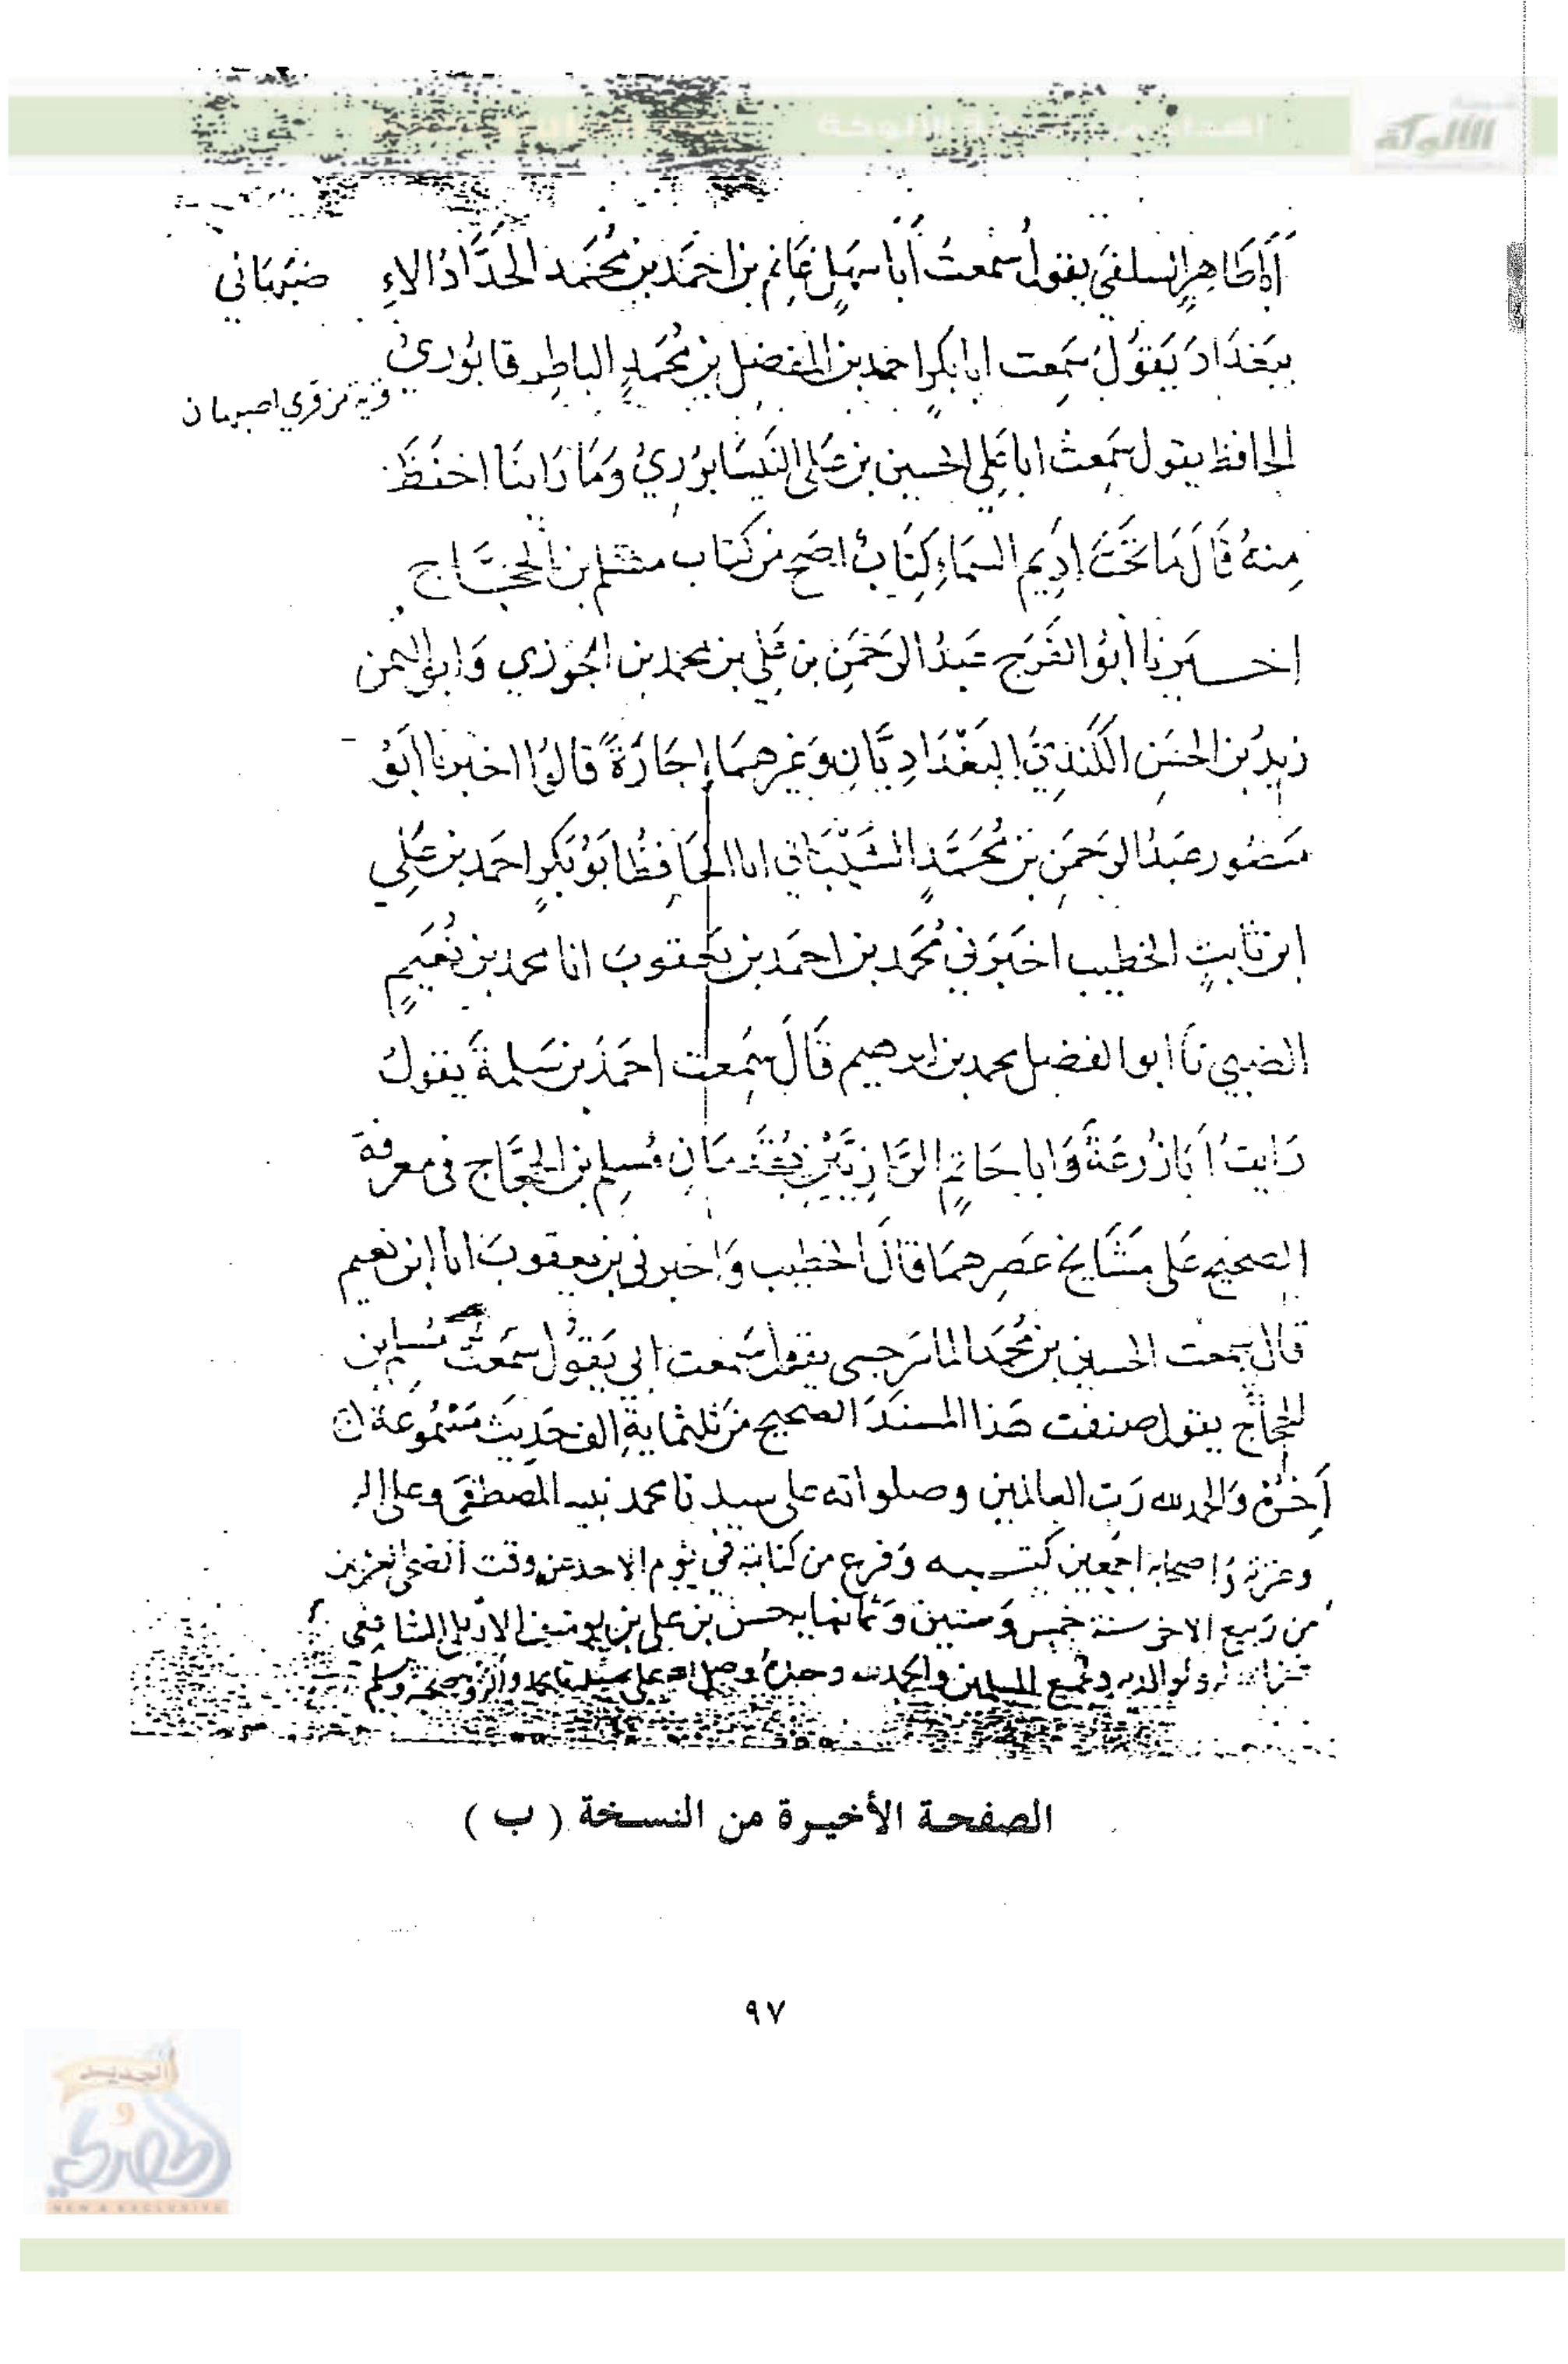 أبا طاهر السلفي يقول سمعت أبا سهل غانم بن احمد بن محمد الحداد الاء صبهاني
ببغداد يقول سمعت ابا بكر احمد بن المفضل بن محمد الباطرقا بوري
قرية من قري اصبهان
الحافظ يقول سمعت ابا علي الحسين بن علي النيسابوري وما راينا احفظ
منه قال ما تحت اديم السماء كتاب اصح من كتاب مسلم بن الحجاج
اخبرنا أبو الفرج عبد الرحمن بن علي بن محمد بن الجوزي وابو اليمن
زيد بن الحسن الكندي البغداديان وغيرهما إجازة قالوا اخبرنا أبو
منصور عبد الرحمن بن محمد الشيباني انا الحافظ ابو بكر احمد بن علي
ابن ثابت الخطيب اخبرني محمد بن احمد بن يعقوب انا محمد بن نعيم
الضبي نا ابو الفضل محمد بن ابرهيم قال سمعت احمد بن سلمة يقول
رايت أبا زرعة وابا حاتم الرازيين يقدمان مسلم بن الحجاج في معرفة
الصحيح على مشايخ عصرهما قال الخطيب واخبرني بن يعقوب انا ابن نعيم
قال سمعت الحسين بن محمد الماسرجسي يقول سمعت ابي يقول سمعت مسلم بن
الحجاج يقول صنفت هذا المسند الصحيح من ثلثماية الف حديث مسموعة
آخره والحمد لله رب العالمين وصلواته على سيدنا محمد نبيه المصطفى وعلى اله
وعترته واصحابه اجمعين كتبه وفرغ من كتابته في يوم الاحد وقت الضحى
من ربيع الاخر سنة خمس وستين وثمانمايه حسن بن علي بن يوسف الاربلي الشافعي
له ولوالديه ولجميع المسلمين والحمد لله وحده وصلى الله على سيدنا محمد وآله وصحبه وسلم
الصفحة الأخيرة من النسخة ( ب )
٩٧
الألوكة
الجديد
و
الحصري
NEW & EXCLUSIVE